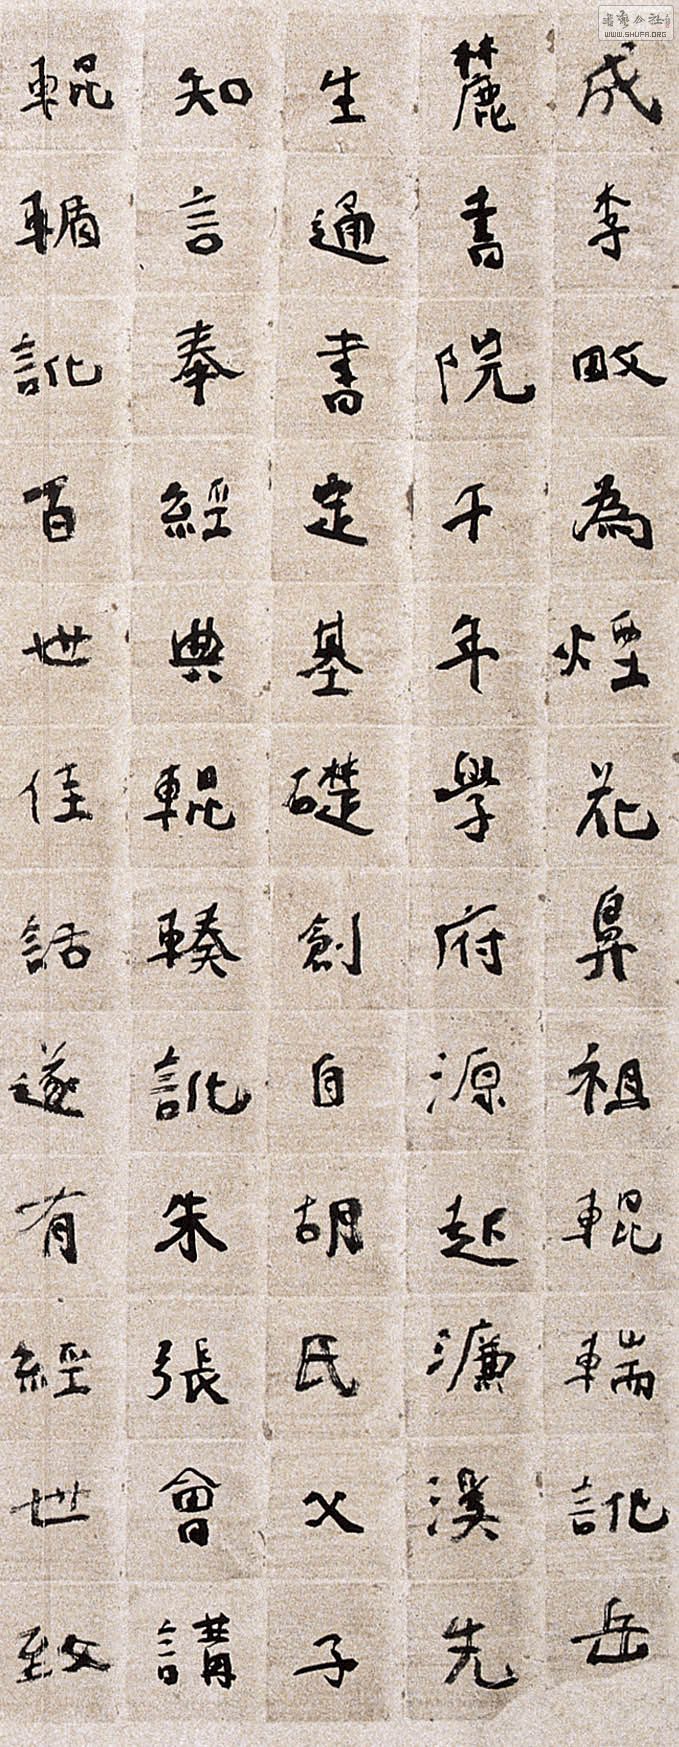 成李畋為煙花鼻祖輥輲訛岳
麓書院千年學府源起濂溪先
生通書定基礎創自胡氏父子
知言奉經典輥輳訛朱張會講
輥輴訛百世佳話遂有經世致
書藝公社
WWW.SHUFA.ORG